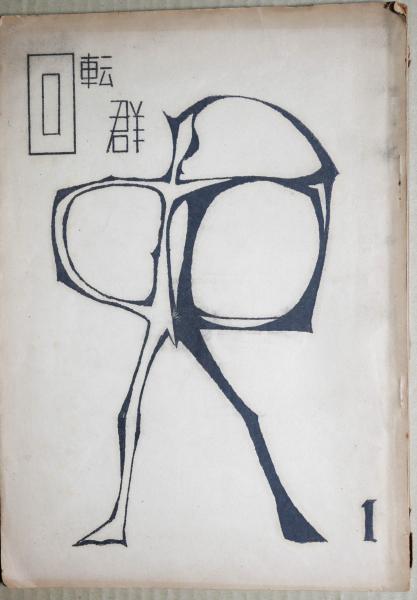 回転
群
1